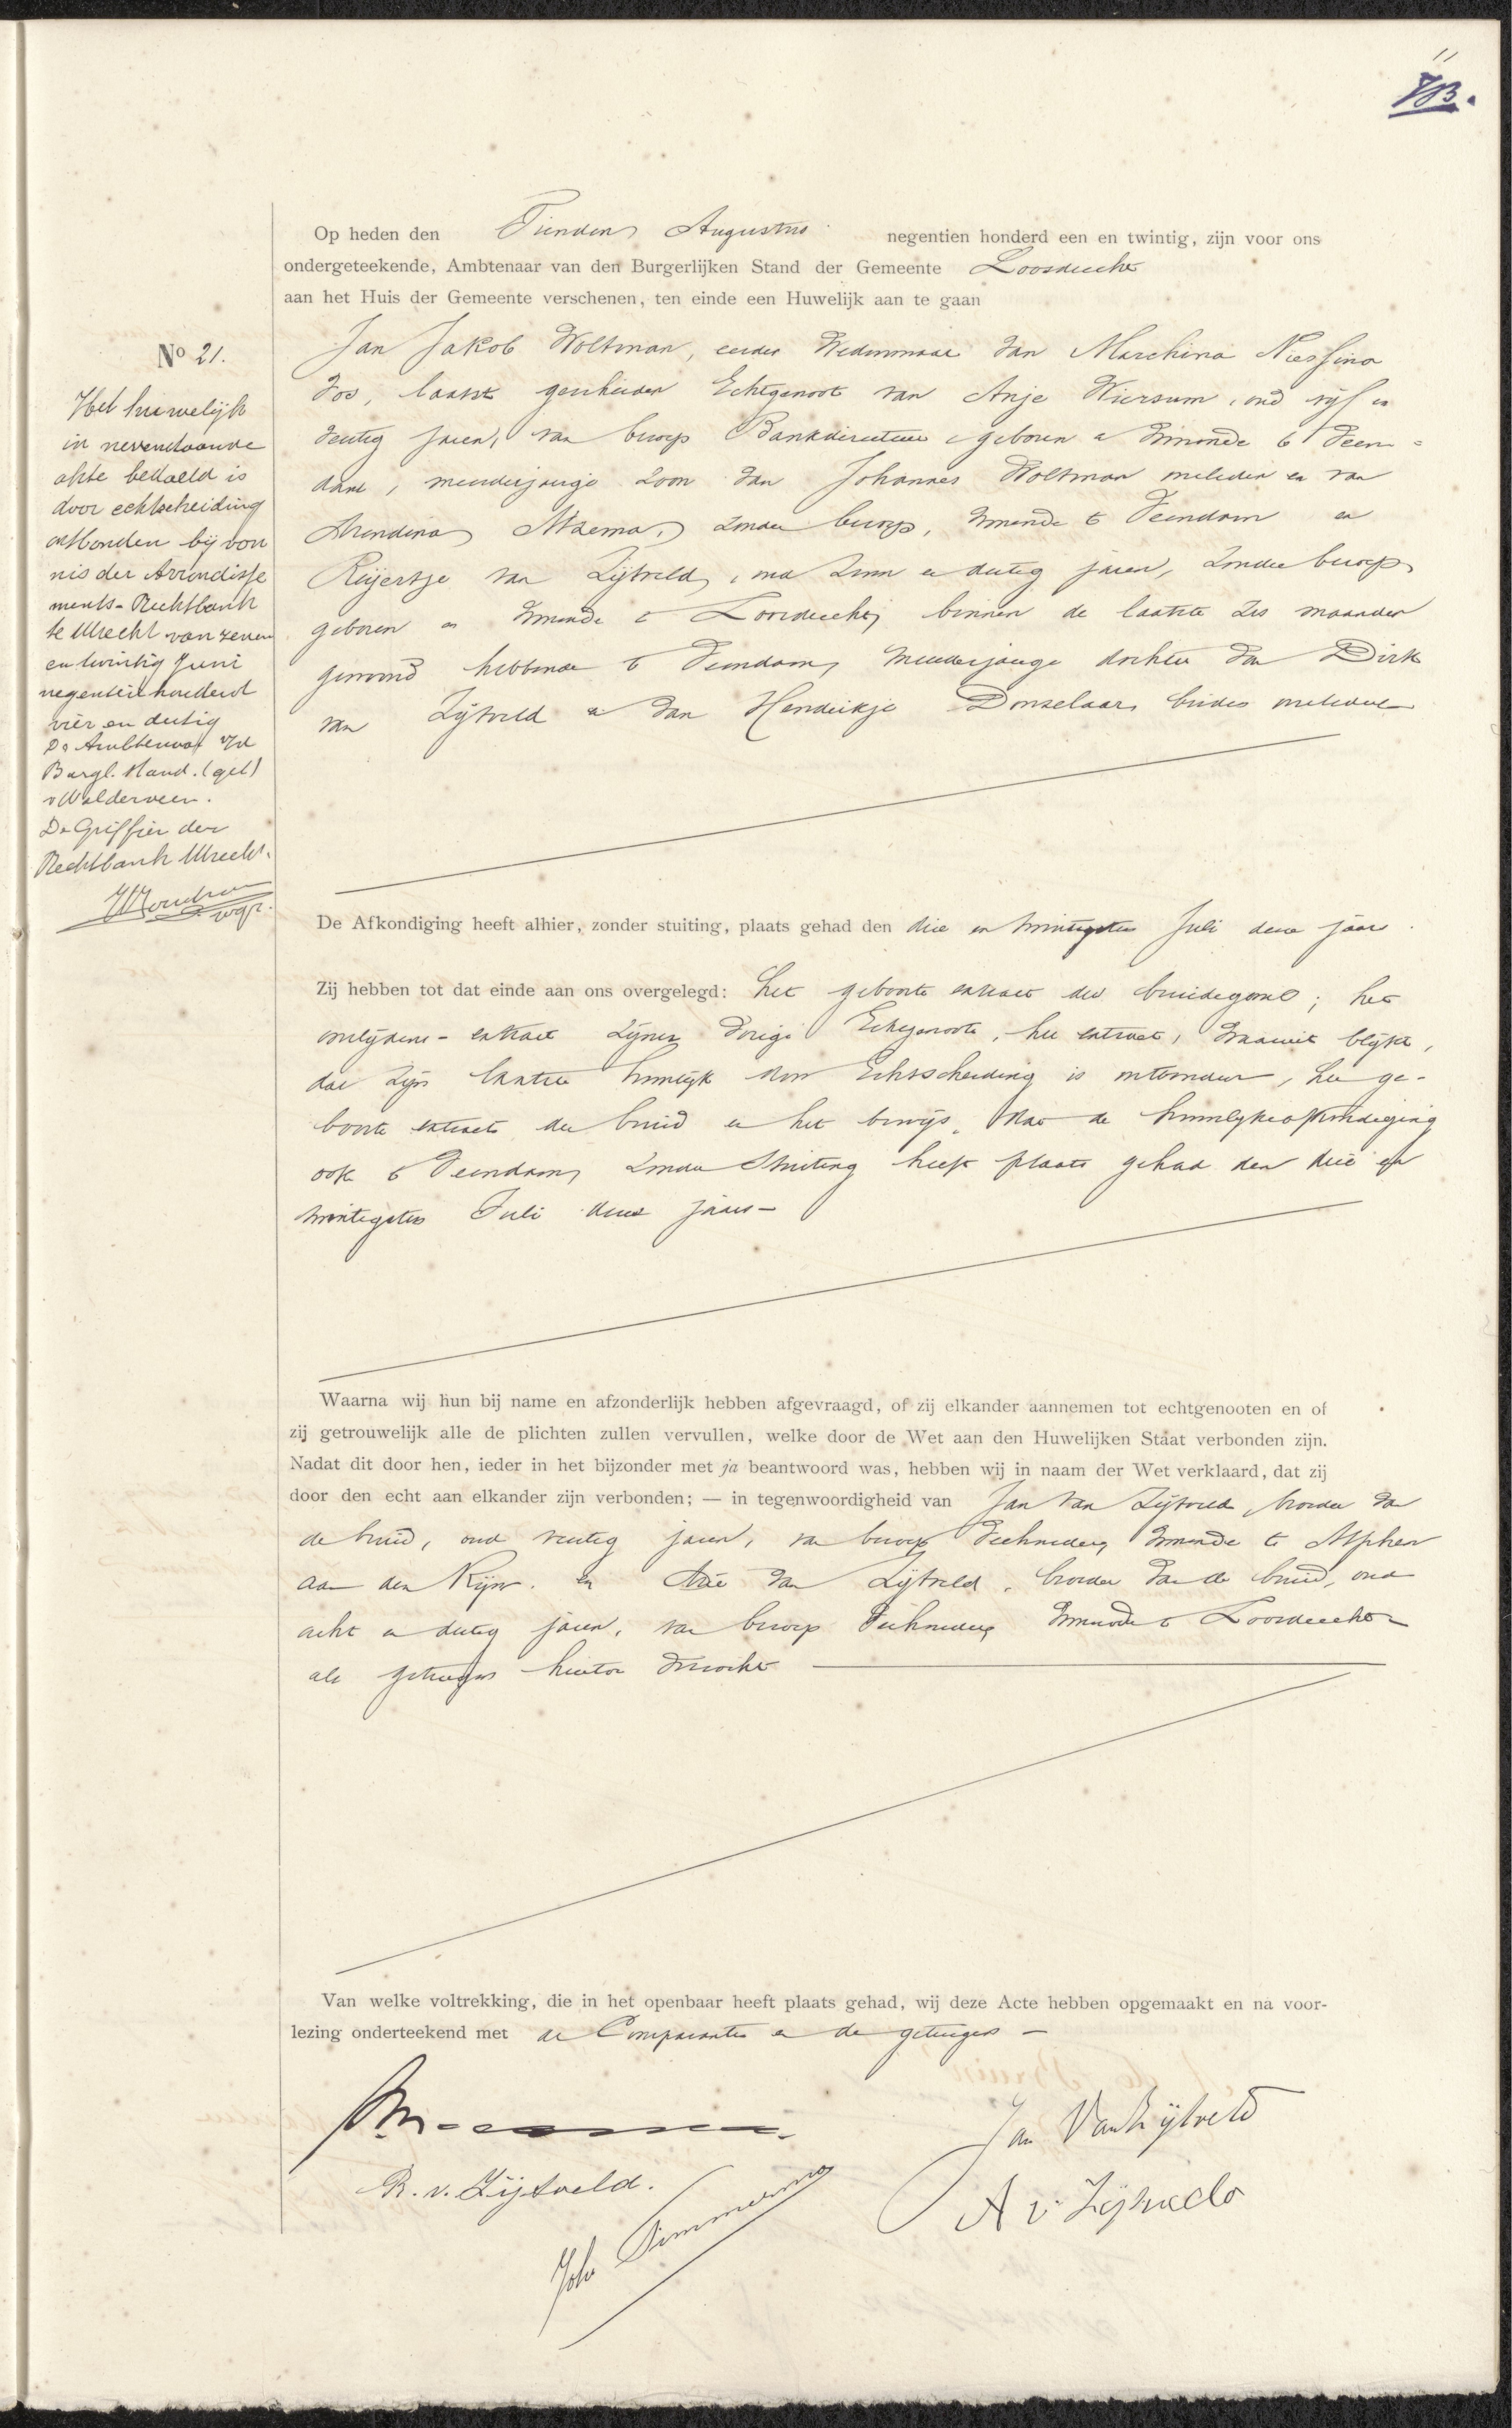 11
Op heden den Tienden Augustus negentien honderd een en twintig, zijn voor ons
ondergeteekende, Ambtenaar van den Burgerlijken Stand der Gemeente Loosdrecht
aan het Huis der Gemeente verschenen, ten einde een Huwelijk aan te gaan
Jan Jakob Woltman, eerder Weduwnaar van Marchina Niessina
Vos, laatst gescheiden Echtgenoot van Anje Wiersum, oud vijf en
dertig jaren, van beroep Bankdirecteur geboren en wonende te Veen-
dam, meerderjarige zoon van Johannes Woltman overleden en van
Arendina Mzema, zonder beroep, wonende te Veendam en
Reijertje van Zijtveld, oud een en dertig jaren, zonder beroep
geboren en wonende te Loosdrecht, binnen de laatste zes maanden
gewoond hebbende te Veendam, meerderjarige dochter van Dirk
van Zijtveld en van Hendrikje Donselaar, beiden overleden
No 21.
Het huwelijk
in nevenstaande
akte bedoeld is
door echtscheiding
ontbonden bij von
nis der Arrondisse
ments-Rechtbank
te Utrecht van zeven
en twintig Juni
negentienhonderd
vier en dertig
De Ambtenaar v/d
Burgl. Stand. (get)
v Walderveen.
De Griffier der
Rechtbank Utrecht.
wgr.
De Afkondiging heeft alhier, zonder stuiting, plaats gehad den drie en twintigsten Juli dezes jaars.
Zij hebben tot dat einde aan ons overgelegd: het geboorte extract des bruidegoms; het
overlijdens-extract zijner vorige Echtgenoote, het extract, waaruit blijkt,
dat zijn laatste huwelijk door Echtscheiding is ontbonden, het ge-
boorte extract der bruid en het bewijs, dat de huwelijksafkondiging
ook te Veendam, zonder Stuiting heeft plaats gehad den drie en
twintigsten Juli dezes jaars-
Waarna wij hun bij name en afzonderlijk hebben afgevraagd, of zij elkander aannemen tot echtgenooten en of
zij getrouwelijk alle de plichten zullen vervullen, welke door de Wet aan den Huwelijken Staat verbonden zijn.
Nadat dit door hen, ieder in het bijzonder met ja beantwoord was, hebben wij in naam der Wet verklaard, dat zij
door den echt aan elkander zijn verbonden; — in tegenwoordigheid van Jan van Zijtveld, broeder van
de bruid, oud veertig jaren, van beroep Veehouder, wonende te Alphen
aan den Rijn. en Arie van Zijtveld, broeder van de bruid, oud
acht en dertig jaren, van beroep Veehouder, wonende te Loosdrecht
als getuigen hiertoe verzocht
Van welke voltrekking, die in het openbaar heeft plaats gehad, wij deze Acte hebben opgemaakt en na voor-
lezing onderteekend met de Comparanten en de getuigen -
Jan Van Zijtveld
R. v. Zijtveld.
A v. Zijtveld